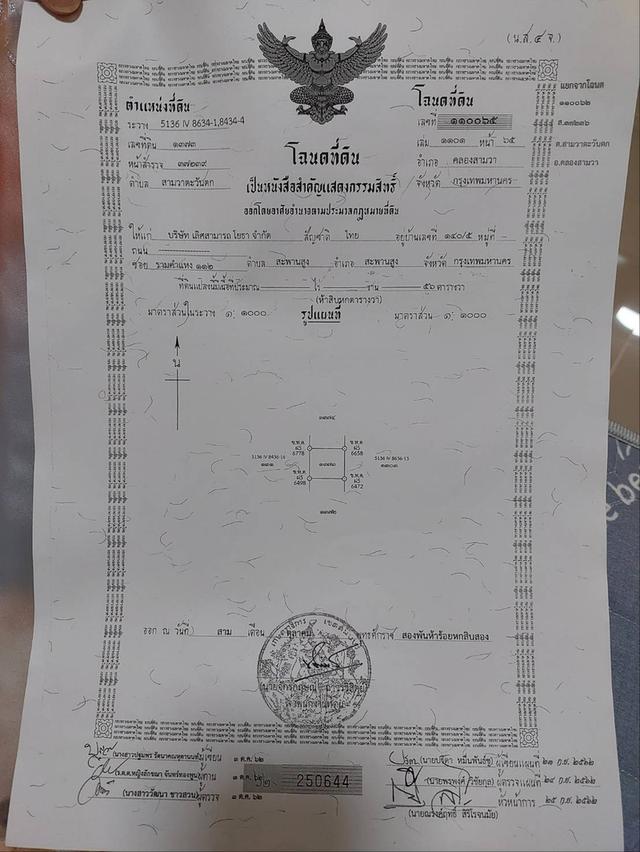 (น.ส.๔ จ.)
ตำแหน่งที่ดิน
ระวาง 5136 IV 8634-1,8434-4
เลขที่ดิน ๑๓๗๓
หน้าสำรวจ ๓๗๒๓๙
ตำบล สามวาตะวันตก
โฉนดที่ดิน
เลขที่ ๑๑๐๐๖๕
เล่ม ๑๑๐๑ หน้า ๖๕
อำเภอ คลองสามวา
จังหวัด กรุงเทพมหานคร
แยกจากโฉนด
๑๑๐๐๖๒
ต.สามวาตะวันตก
อ.คลองสามวา
โฉนดที่ดิน
เป็นหนังสือสำคัญแสดงกรรมสิทธิ์
ออกโดยอาศัยอำนาจตามประมวลกฎหมายที่ดิน
ให้แก่ บริษัท เลิศสามารถ โยธา จำกัด สัญชาติ ไทย อยู่บ้านเลขที่ ๑๔๐/๕ หมู่ที่ -
ถนน -
ซอย รามคำแหง ๑๑๒ ตำบล สะพานสูง อำเภอ สะพานสูง จังหวัด กรุงเทพมหานคร
ที่ดินแปลงนี้มีเนื้อที่ประมาณ - ไร่ - งาน ๕๖ ตารางวา
(ห้าสิบหกตารางวา)
มาตราส่วนในระวาง ๑: ๑๐๐๐ รูปแผนที่ มาตราส่วน ๑: ๑๐๐๐
น
๑๓๗๔
ข.ท.ด ข.ท.ด
6778 6658
๑๓๗๓
ข.ท.ด ข.ท.ด
6498 6472
๑๓๗๒
ออก ณ วันที่ สาม เดือน ตุลาคม พุทธศักราช สองพันห้าร้อยหกสิบสอง
ผู้เขียน ๓ ต.ค. ๖๒
ผู้ทาน ๓ ต.ค. ๖๒
(นางสาววัฒนา ขาวสวน) ผู้ตรวจ ๓ ต.ค. ๖๒
250644
ผู้เขียนแผนที่ ๒๑ ก.ย. ๒๕๖๒
ผู้ตรวจแผนที่ ๒๔ ก.ย. ๒๕๖๒
หัวหน้าการ ๒๕ ก.ย. ๒๕๖๒
(นายณรงค์ฤทธิ์ สิริโรจนมัย)